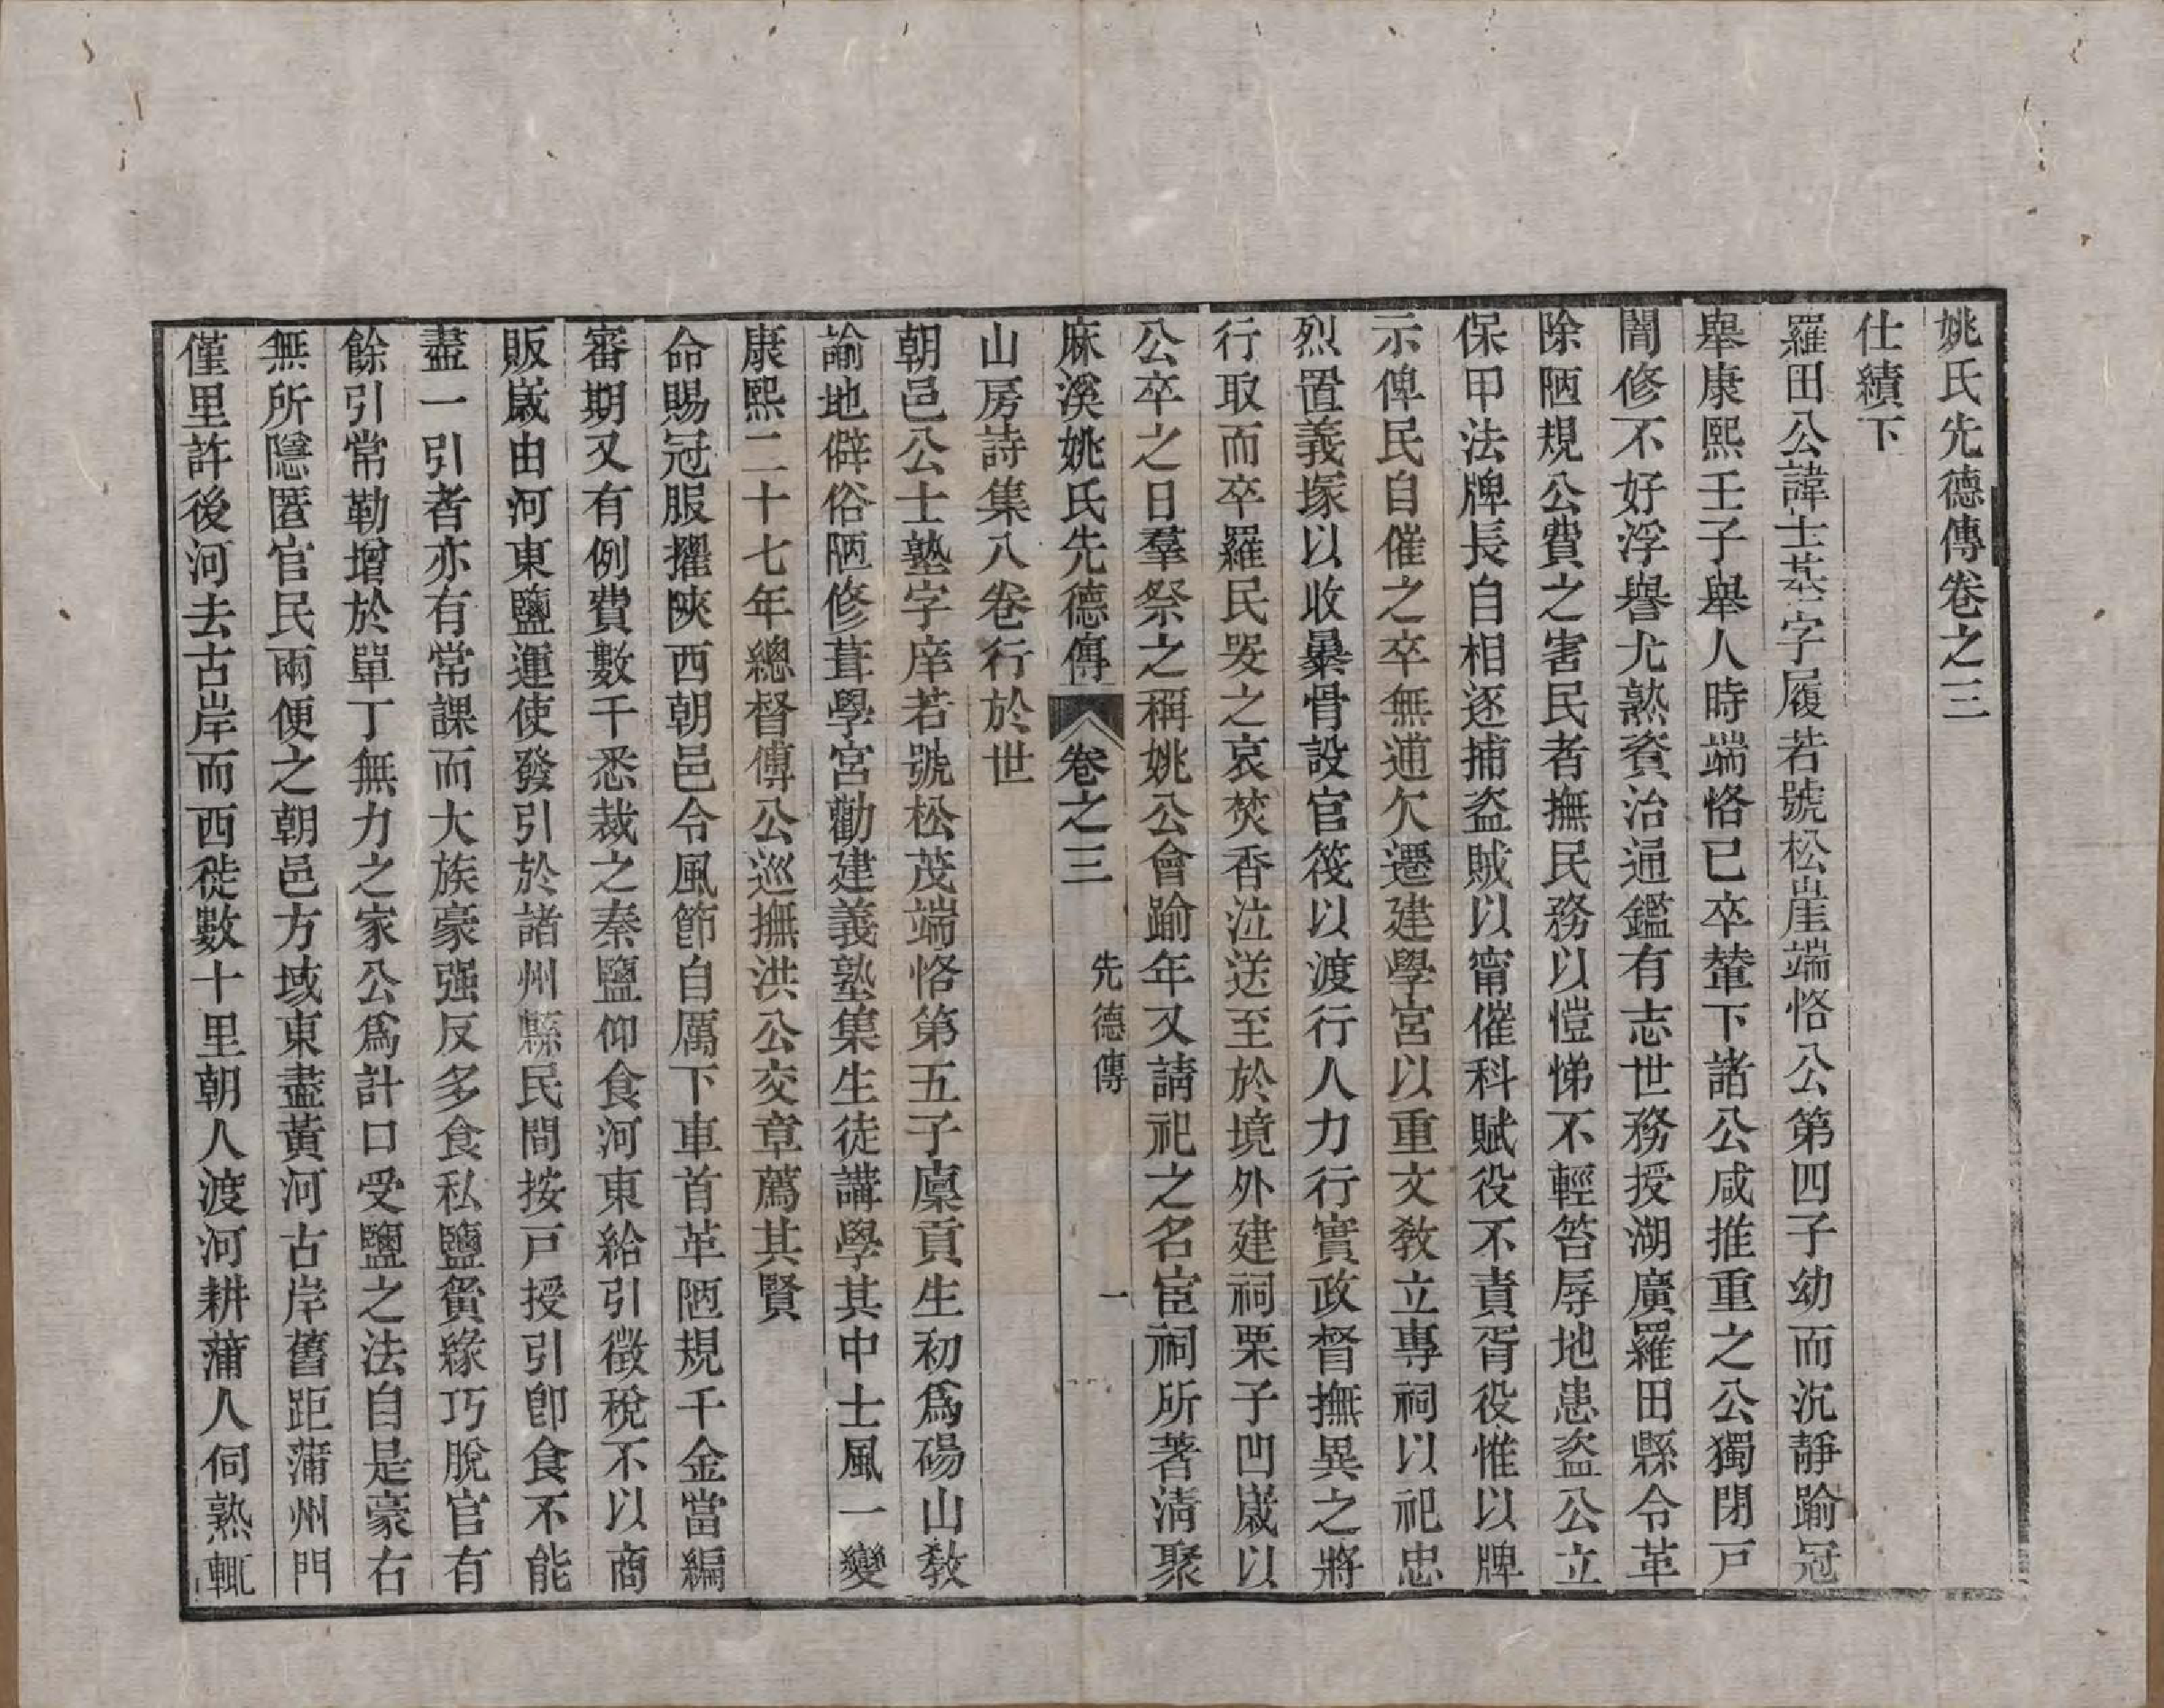 姚氏先德傳卷之三
仕績下
羅田公諱士基字履若號松崖端恪公第四子幼而沉靜踰冠
舉康熙壬子舉人時端恪已卒輦下諸公咸推重之公獨閉戸
闇修不好浮譽尤熟資治通鑑有志世務授湖廣羅田縣令革
除陋規公費之害民者撫民務以愷悌不輕笞辱地患盜公立
保甲法牌長自相逐捕盜賊以甯催科賦役不責胥役惟以牌
示俾民自催之卒無逋欠遷建學宮以重文敎立專祠以祀忠
烈置義塚以收暴骨設官筏以渡行人力行實政督撫異之將
行取而卒羅民哭之哀焚香泣送至於境外建祠栗子凹嵗以
公卒之日羣祭之稱姚公會踰年又請祀之名宦祠所著淸聚
麻溪姚氏先德傳 卷之三 先德傳 一
山房詩集八卷行於世
朝邑公士塾字庠若號松茂端恪第五子廩貢生初爲碭山敎
諭地僻俗陋修葺學宮勸建義塾集生徒講學其中士風一變
康熙二十七年總督傅公巡撫洪公交章薦其賢
命賜冠服擢陝西朝邑令風節自厲下車首革陋規千金當編
審期又有例費數千悉裁之秦鹽仰食河東給引徵稅不以商
販嵗由河東鹽運使發引於諸州縣民間按戸授引卽食不能
盡一引者亦有常課而大族豪强反多食私鹽夤緣巧脫官有
餘引常勒增於單丁無力之家公爲計口受鹽之法自是豪右
無所隱匿官民兩便之朝邑方域東盡黃河古岸舊距蒲州門
僅里許後河去古岸而西徙數十里朝人渡河耕蒲人伺熟輒